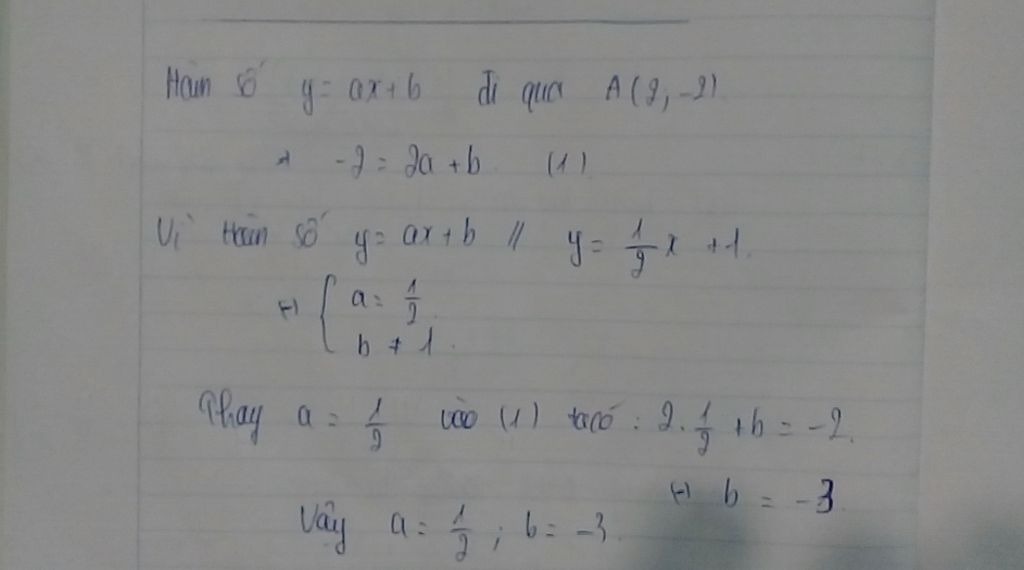 Hàm số y = ax + b đi qua A(2, -2)
=> -2 = 2a + b (1)
Vì Hàm số y = ax + b // y = 1/2 x + 1.
<=> { a = 1/2
b ≠ 1.
Thay a = 1/2 vào (1) ta có : 2. 1/2 + b = -2.
<=> b = -3.
Vậy a = 1/2 ; b = -3.